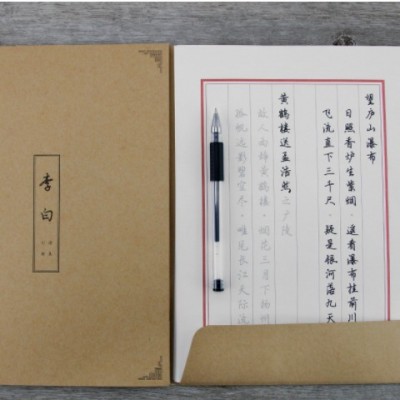 李白
望庐山瀑布
日照香炉生紫烟·遥看瀑布挂前川
飞流直下三千尺·疑是银河落九天
黄鹤楼送孟浩然之广陵
故人西辞黄鹤楼·烟花三月下扬州
孤帆远影碧空尽·唯见长江天际流